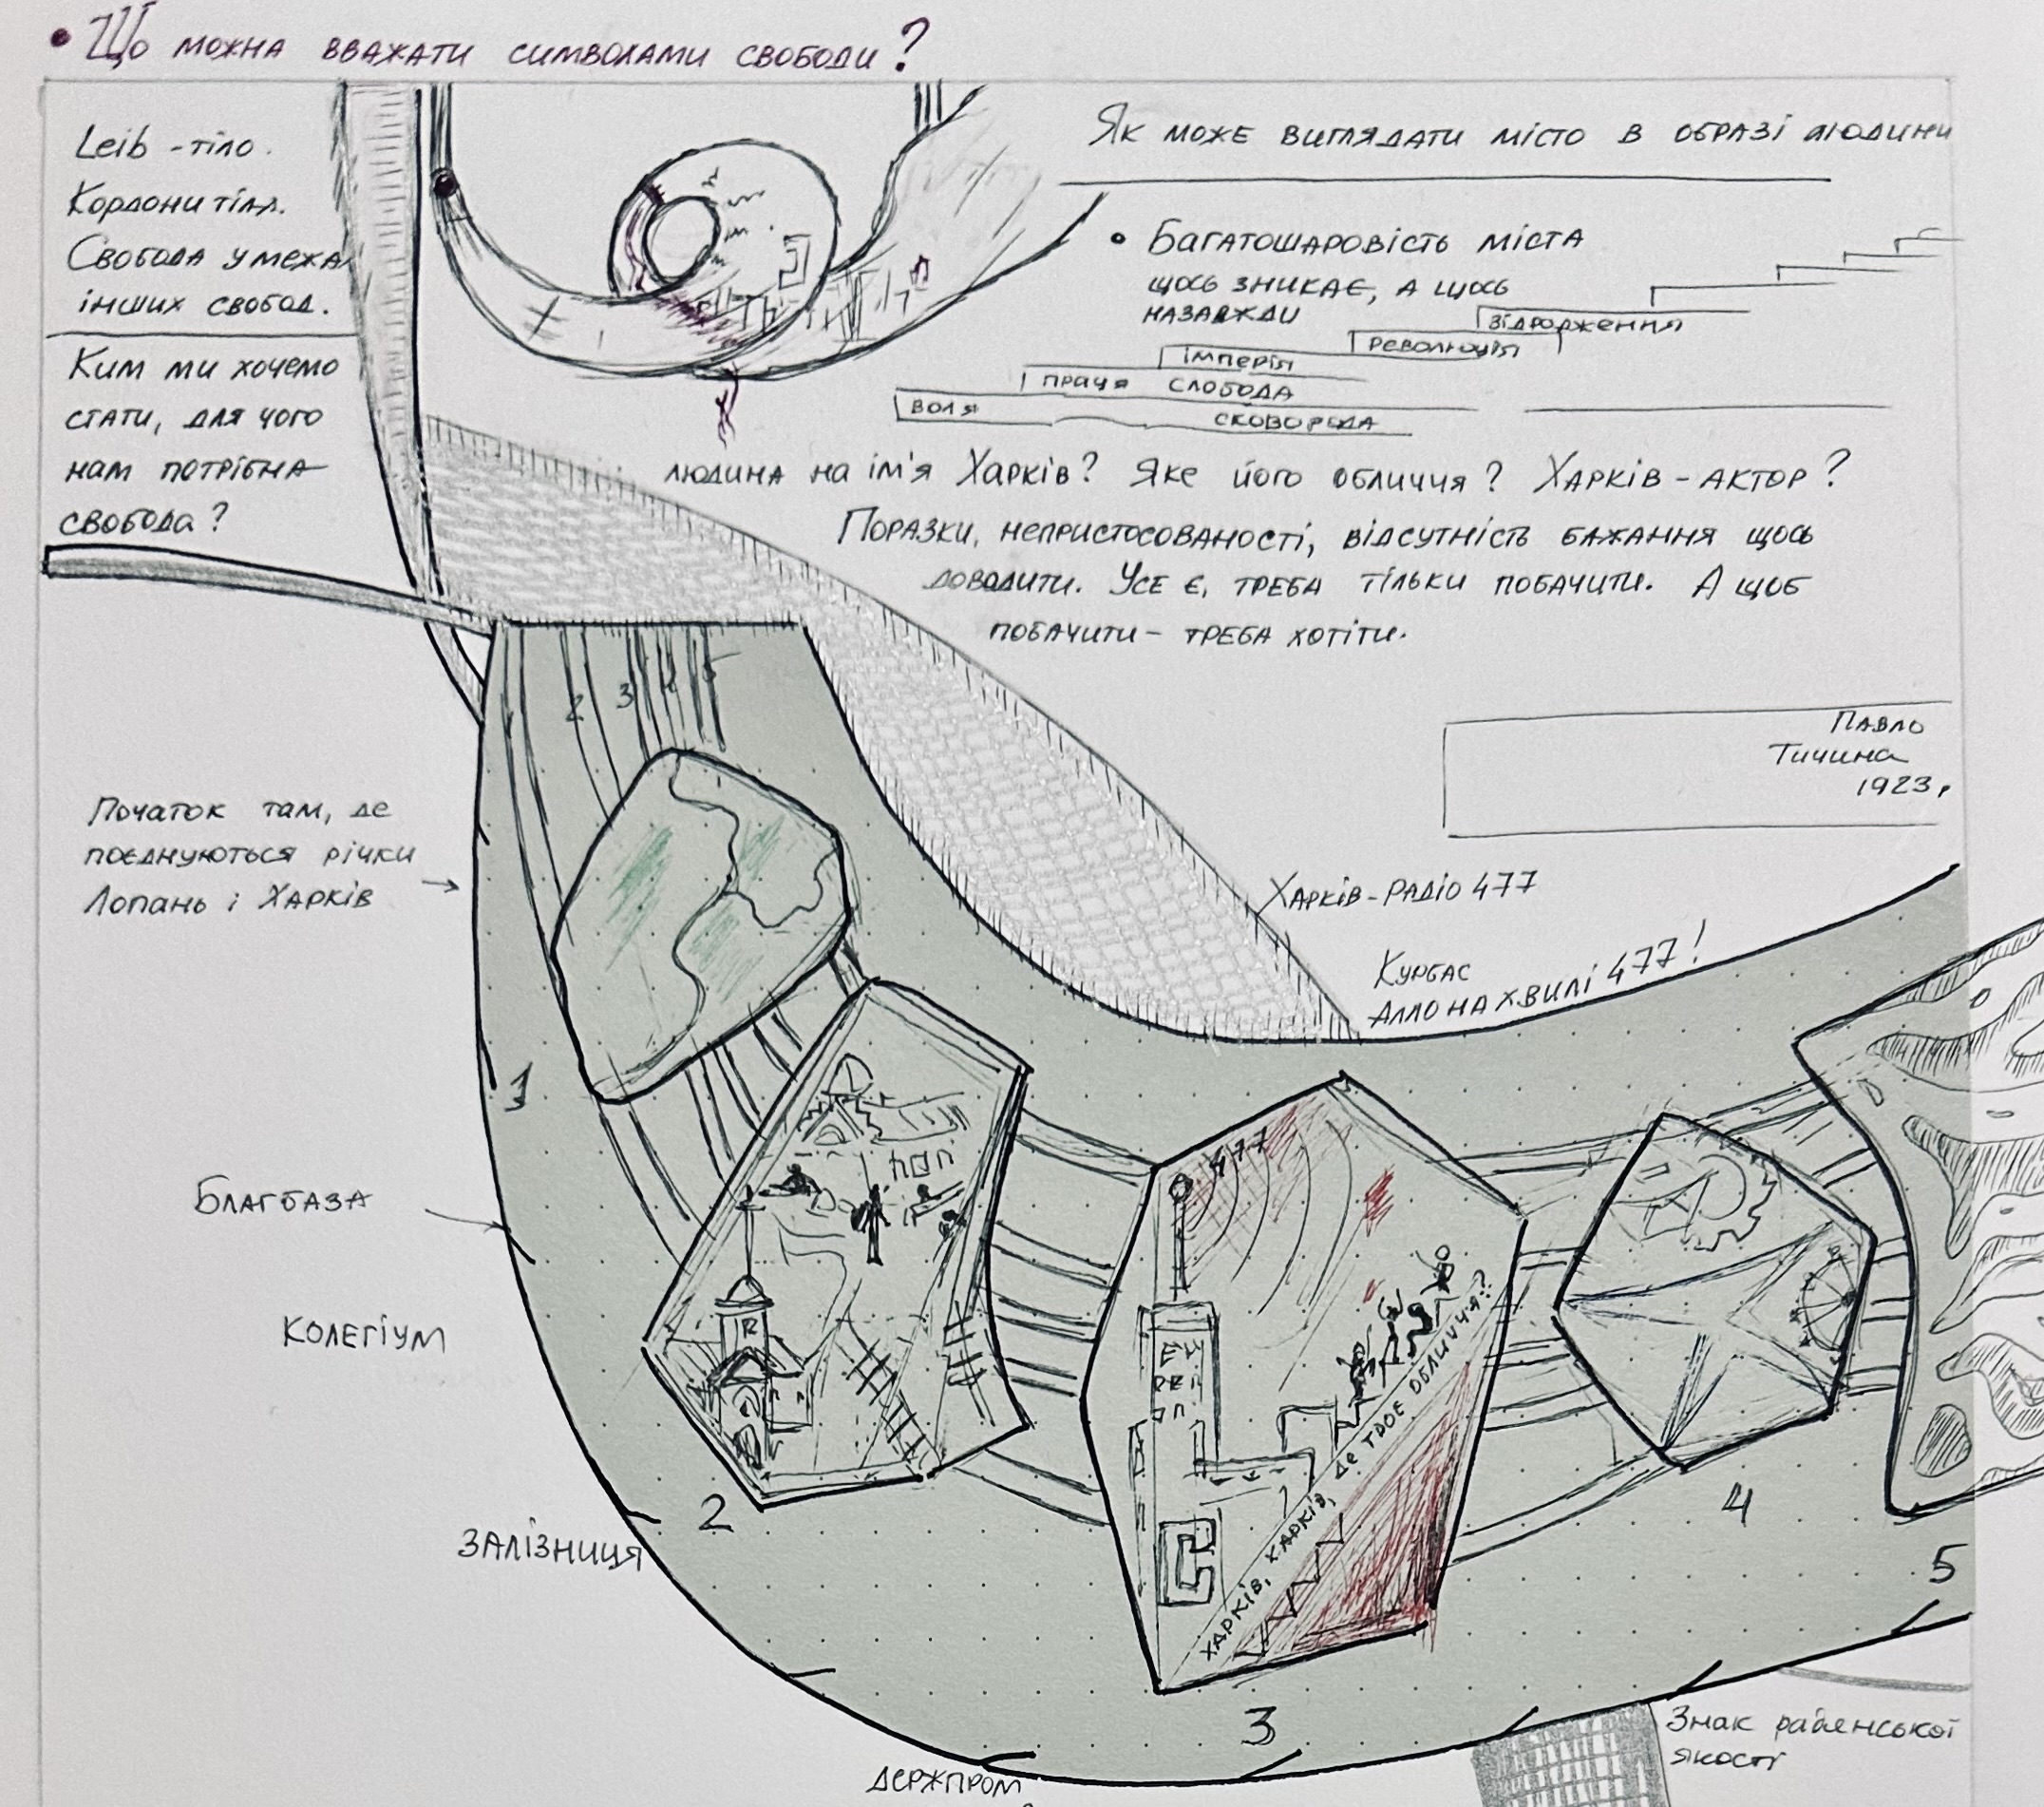 • Що можна вважати символами свободи?
Leib - тіло.
Кордони тіла.
Свобода у межах
інших свобод.
Ким ми хочемо
стати, для чого
нам потрібна
свобода?
Як може виглядати місто в образі людини
• Багатошаровість міста
щось зникає, а щось
назавжди
зідродження
революція
імперія
праця слобода
воля сковорода
людина на ім'я Харків? Яке його обличчя? Харків - актор?
Поразки, непристосованості, відсутність бажання щось
доводити. Усе є, треба тільки побачити. А щоб
побачити - треба хотіти.
Павло
Тичина
1923 р
Харків-Радіо 477
Курбас
Алло на хвилі 477!
Початок там, де
поєднуються річки
Лопань і Харків
2 3 4 5
1
Благбаза
Колегіум
Залізниця
2
477
Харків, Харків, де твоє обличчя?
3
4
5
Держпром
Знак радянської
якості